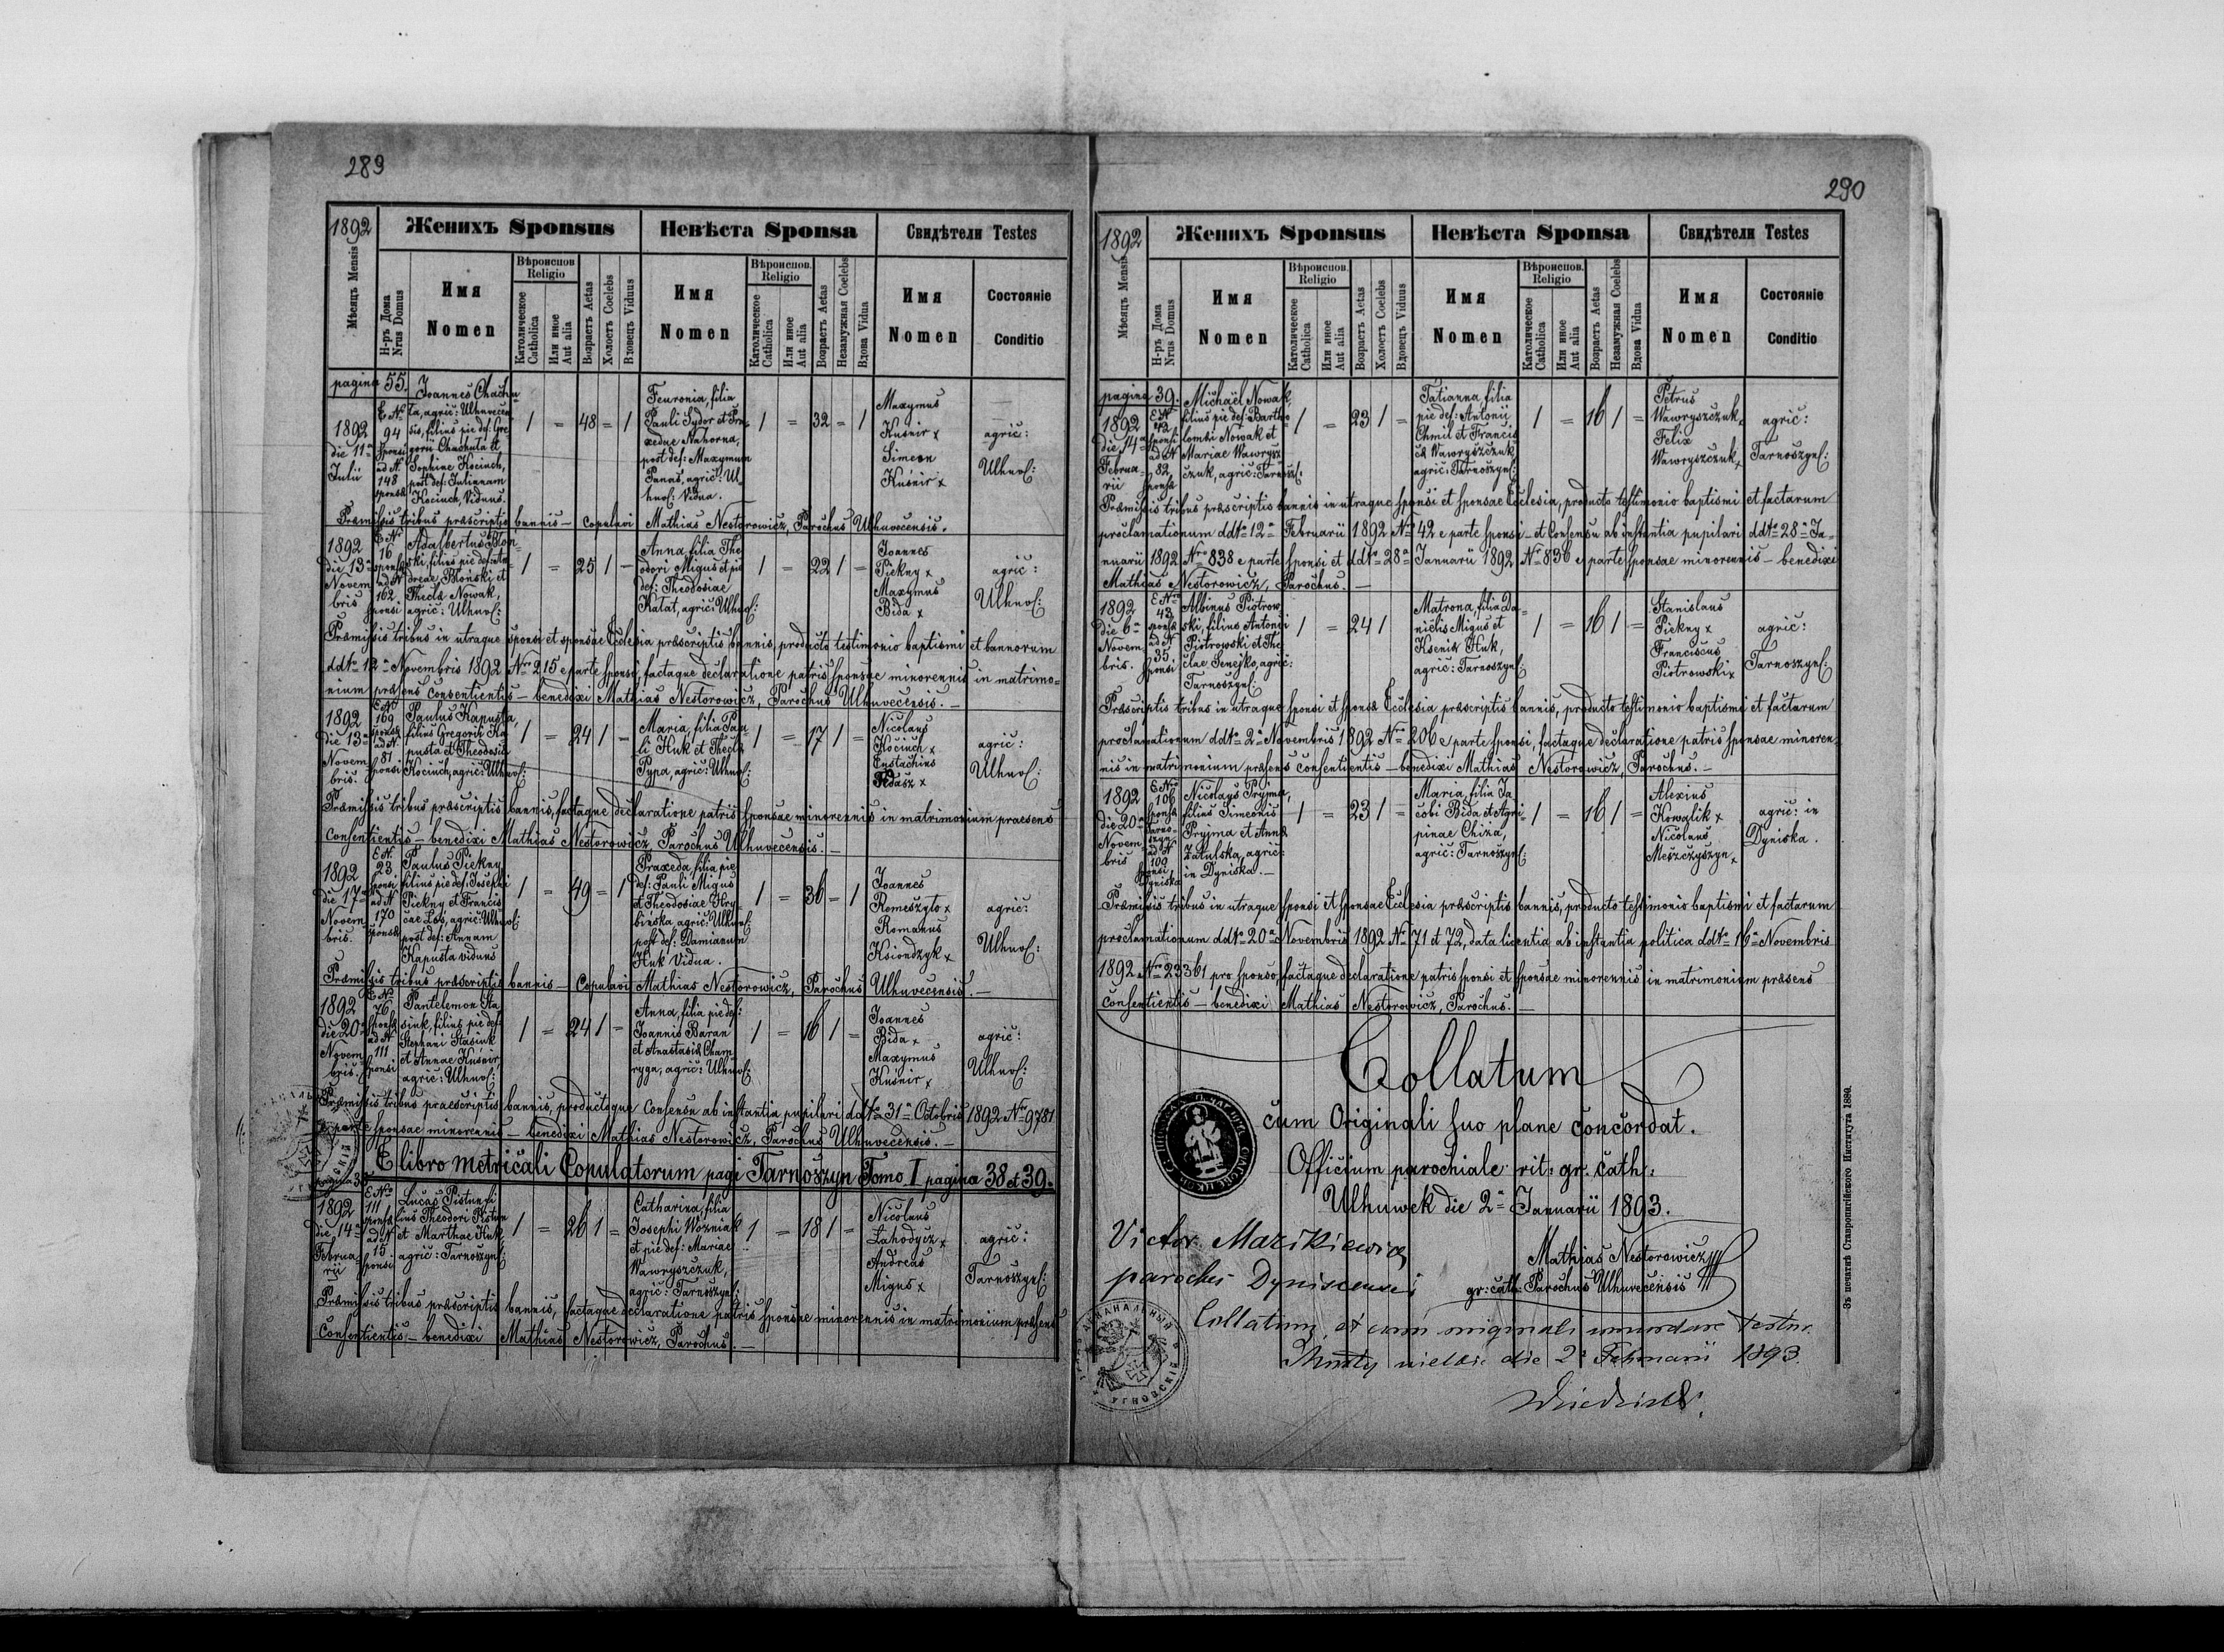 289
1892
Женихъ Sponsus
Невѣста Sponsa
Свидѣтели Testes
Мѣсяцъ Mensis
Н-ръ Дома
Nrus Domus
Имя
Nomen
Вѣроиспов.
Religio
Католическое
Catholica
Или иное
Aut alia
Возрастъ Aetas
Холостъ Coelebs
Вдовецъ Viduus
Имя
Nomen
Вѣроиспов.
Religio
Католическое
Catholica
Или иное
Aut alia
Возрастъ Aetas
Незамужная Coelebs
Вдова Vidua
Имя
Nomen
Состояніе
Conditio
pagina 55.
1892
die 11a
Julii
E No
94
sponsi
ad N.
148
sponsae
Joannes Chachu-
ta, agric: Ulhuvecen-
sis, filius pie def: Gre-
gorii Chachuta et
Sophiae Kociuch,
post def: Julianam
Kociuch, Viduus.
1 = 48 = 1
Feuronia, filia
Pauli Sydor et Pra-
xedae Nahorna,
post def: Maxymum
Panas, agric: Ul-
huv: Vidua.
1 = 32 = 1
Maxymus
Kuśnir x
Simeon
Kuśnir x
agric:
Ulhuv:
Præmissis tribus præscriptis bannis – Copulavi Mathias Nestorowicz, Parochus Ulhuvecensis.
1892
die 13a
Novem
bris
E No
16
sponsae
ad N
162
sponsi
Adalbertus Błon-
ski, filius pie def: An-
dreae Błoński et
Thecla Nowak,
agric: Ulhuv:
1 = 25 1 –
Anna, filia The
odori Migus et pie
def: Theodosiae
Kałat, agric: Ulhuv:
1 = 22 1 =
Joannes
Piekny x
Maxymus
Bida x
agric:
Ulhuv:
Præmissis tribus in utraque sponsi et sponsae Ecclesia præscriptis bannis, producto testimonio baptismi et bannorum
ddto 12a Novembris 1892 Nro 215 e parte sponsi, factaque declaratione patris sponsae minorennis in matrimo-
nium præsens consentientis – benedixi Mathias Nestorowicz, Parochus Ulhuvecensis. –
1892
die 13a
Novem
bris.
E N
169
sponsae
ad N.
81
sponsi
Paulus Kapusta,
filius Gregorii Ka
pusta et Theodosia
Kociuch, agric: Ulhuv:
1 = 24 1 –
Maria, filia Pau
li Huk et Thecla
Pypa, agric: Ulhuv:
1 = 17 1 =
Nicolaus
Kociuch x
Eustachius
Fedasz x
agric:
Ulhuv:
Præmissis tribus præscriptis bannis, factaque declaratione patris sponsae minorennis in matrimonium praesens
consentientis – benedixi Mathias Nestorowicz, Parochus Ulhuvecensis. –
1892
die 17a
Novem
bris.
E N.
23
sponsi
ad N
170
sponsae
Paulus Piekny
filius pie def: Josephi
Piekny et Francis
cae Łoś, agric: Ulhuv:
post def: Annam
Kapusta viduus
1 = 49 = 1
Praxeda, filia pie
def: Pauli Migus
et Theodosiae Hry-
bińska, agric: Ulhuv:
post def: Damianum
Huk Vidua.
1 = 36 – 1
Joannes
Romeszyło x
Romanus
Ksiondzyk x
agric:
Ulhuv:
Præmissis tribus præscriptis bannis – Copulavi Mathias Nestorowicz, Parochus Ulhuvecensis. –
1892
die 20a
Novem
bris.
E No
76
sponsae
ad N
111
sponsi
Pantelemon Sta
siuk, filius pie def:
Stephani Stasiuk
et Annae Kuśnir,
agric: Ulhuv:
1 = 24 1 –
Anna, filia pie def:
Joannis Baran
et Anastasia Cham
ryga, agric: Ulhuv:
1 = 16 1 =
Joannes
Bida x
Maxymus
Kuśnir x
agric:
Ulhuv:
Præmissis tribus praescriptis bannis, productoque Consensu ab instantia pupilari ddto 31a Octobris 1892 Nro 9781
e parte sponsae minorennis – benedixi Mathias Nestorowicz, Parochus Ulhuvecensis. –
E libro metricali Copulatorum pagi Tarnoszyn Tomo I pagina 38 et 39.
1892
die 14a
Februa-
rii
E No
111
sponsae
ad N
15.
sponsi
Lucas Pistun, fi
lius Theodori Pistun
et Marthae Huk
agric: Tarnoszyn:
1 = 26 1 =
Catharina, filia
Josephi Wozniak
et pie def: Mariae
Wawryszczuk,
agric: Tarnoszyn:
1 = 18 1 –
Nicolaus
Lahodycz x
Andreas
Migus x
agric:
Tarnoszyn:
Præmissis tribus præscriptis bannis, factaque declaratione patris sponsae minorennis in matrimonium præsens
Consentientis – benedixi Mathias Nestorowicz, Parochus. –
290
1892
Женихъ Sponsus
Невѣста Sponsa
Свидѣтели Testes
Мѣсяцъ Mensis
Н-ръ Дома
Nrus Domus
Имя
Nomen
Вѣроиспов.
Religio
Католическое
Catholica
Или иное
Aut alia
Возрастъ Aetas
Холостъ Coelebs
Вдовецъ Viduus
Имя
Nomen
Вѣроиспов.
Religio
Католическое
Catholica
Или иное
Aut alia
Возрастъ Aetas
Незамужная Coelebs
Вдова Vidua
Имя
Nomen
Состояніе
Conditio
pagina 39.
1892
die 14a
Februa-
rii
E No
42
sponsi
ad N
82
sponsae
Michaël Nowak,
filius pie def: Bartho
lomei Nowak et
Mariae Wawrysz
czuk, agric: Tarnosz:
1 = 23 1 =
Tatianna, filia
pie def: Antonii
Chmil et Francis
ca Wawryszczuk
agric: Tarnoszyn:
1 = 16 1 =
Petrus
Wawryszczuk x
Felix
Wawryszczuk x
agric:
Tarnoszyn:
Præmissis tribus præscriptis bannis in utraque sponsi et sponsae Ecclesia, producto testimonio baptismi et factarum
proclamationum ddto 12a Februarii 1892 No 42 e parte sponsi – et Consensu ab instantia pupilari ddto 28a Ja-
nuarii 1892 Nro 838 e parte sponsi et ddto 28a Januarii 1892 No 836 e parte sponsae minorennis – benedixi
Mathias Nestorowicz, Parochus. –
1892
die 6a
Novem
bris.
E No
43
sponsae
ad N
35
sponsi
Albinus Piotrow
ski, filius Antonii
Piotrowski et The
clae Senejko, agric:
Tarnoszyn:
1 = 24 1
Matrona, filia Da
nielis Migus et
Ksenia Huk,
agric: Tarnoszyn:
1 = 16 1 =
Stanislaus
Piekny x
Franciscus
Piotrowski x
agric:
Tarnoszyn:
Præscriptis tribus in utraque sponsi et sponsa Ecclesia præscriptis bannis, producto testimonio baptismi et factarum
proclamationum ddto 2a Novembris 1892 Nro 206 e parte sponsi, factaque declaratione patris sponsae minoren-
nis in matrimonium præsens consentientis – benedixi Mathias Nestorowicz, Parochus. –
1892
die 20a
Novem
bris
E No
106
sponsae
Tarno-
szyn
ad N
109
sponsi
Dyniska
Nicolaus Pryjma,
filius Simeonis
Pryjma et Anna
Zatulska, agric:
in Dyniska. –
1 = 23 1 =
Maria, filia Ja
cobi Bida et Agri
pinae Chiza,
agric: Tarnoszyn:
1 = 16 1 =
Alexius
Kowalik x
Nicolaus
Meszczyszyn x
agric: in
Dyniska.
Præmissis tribus in utraque sponsi et sponsae Ecclesia præscriptis bannis, producto testimonio baptismi et factarum
proclamationum ddto 20a Novembris 1892 No 71 et 72, data licentia ab instantia politica ddto 16a Novembris
1892 Nro 23361 pro sponso, factaque declaratione patris sponsi et sponsae minorennis in matrimonium præsens
Consentientis – benedixi Mathias Nestorowicz, Parochus. –
Collatum
cum Originali suo plane concordat.
Officium parochiale rit: gr. cath:
Ulhuwek die 2a Januarii 1893.
Victor Mazikiewicz
parochus Dyniscensis
Mathias Nestorowicz
gr: cath: Parochus Ulhuvecensis
Collatum et cum originali
die 2a Februarii 1893.
Зъ печатнѣ Ставропигійского Института 1890.